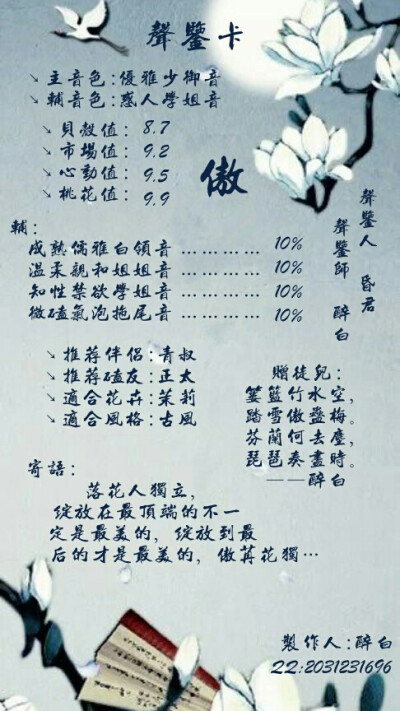 聲鑒卡
↘主音色:優雅少御音
↘輔音色:惑人學姐音
↘貝殼值:8.7
↘市場值:9.2
↘心動值:9.5
↘桃花值:9.9
傲
聲鑒人 昏君
聲鑒師 醉白
輔:
成熟儒雅白領音…………10%
溫柔親和姐姐音…………10%
知性禁欲學姐音…………10%
微磕氣泡拖尾音…………10%
↘推荐伴侶:青叔
↘推荐磕友:正太
↘適合花卉:茉莉
↘適合風格:古風
贈徒兒:
簍籃竹水空,
踏雪傲蠱梅。
芬蘭何去塵,
琵琶奏盡時。
——醉白
寄語:
落花人獨立,
綻放在最頂端的不一
定是最美的,綻放到最
后的才是最美的,傲苒花獨…
製作人:醉白
22:2031231696